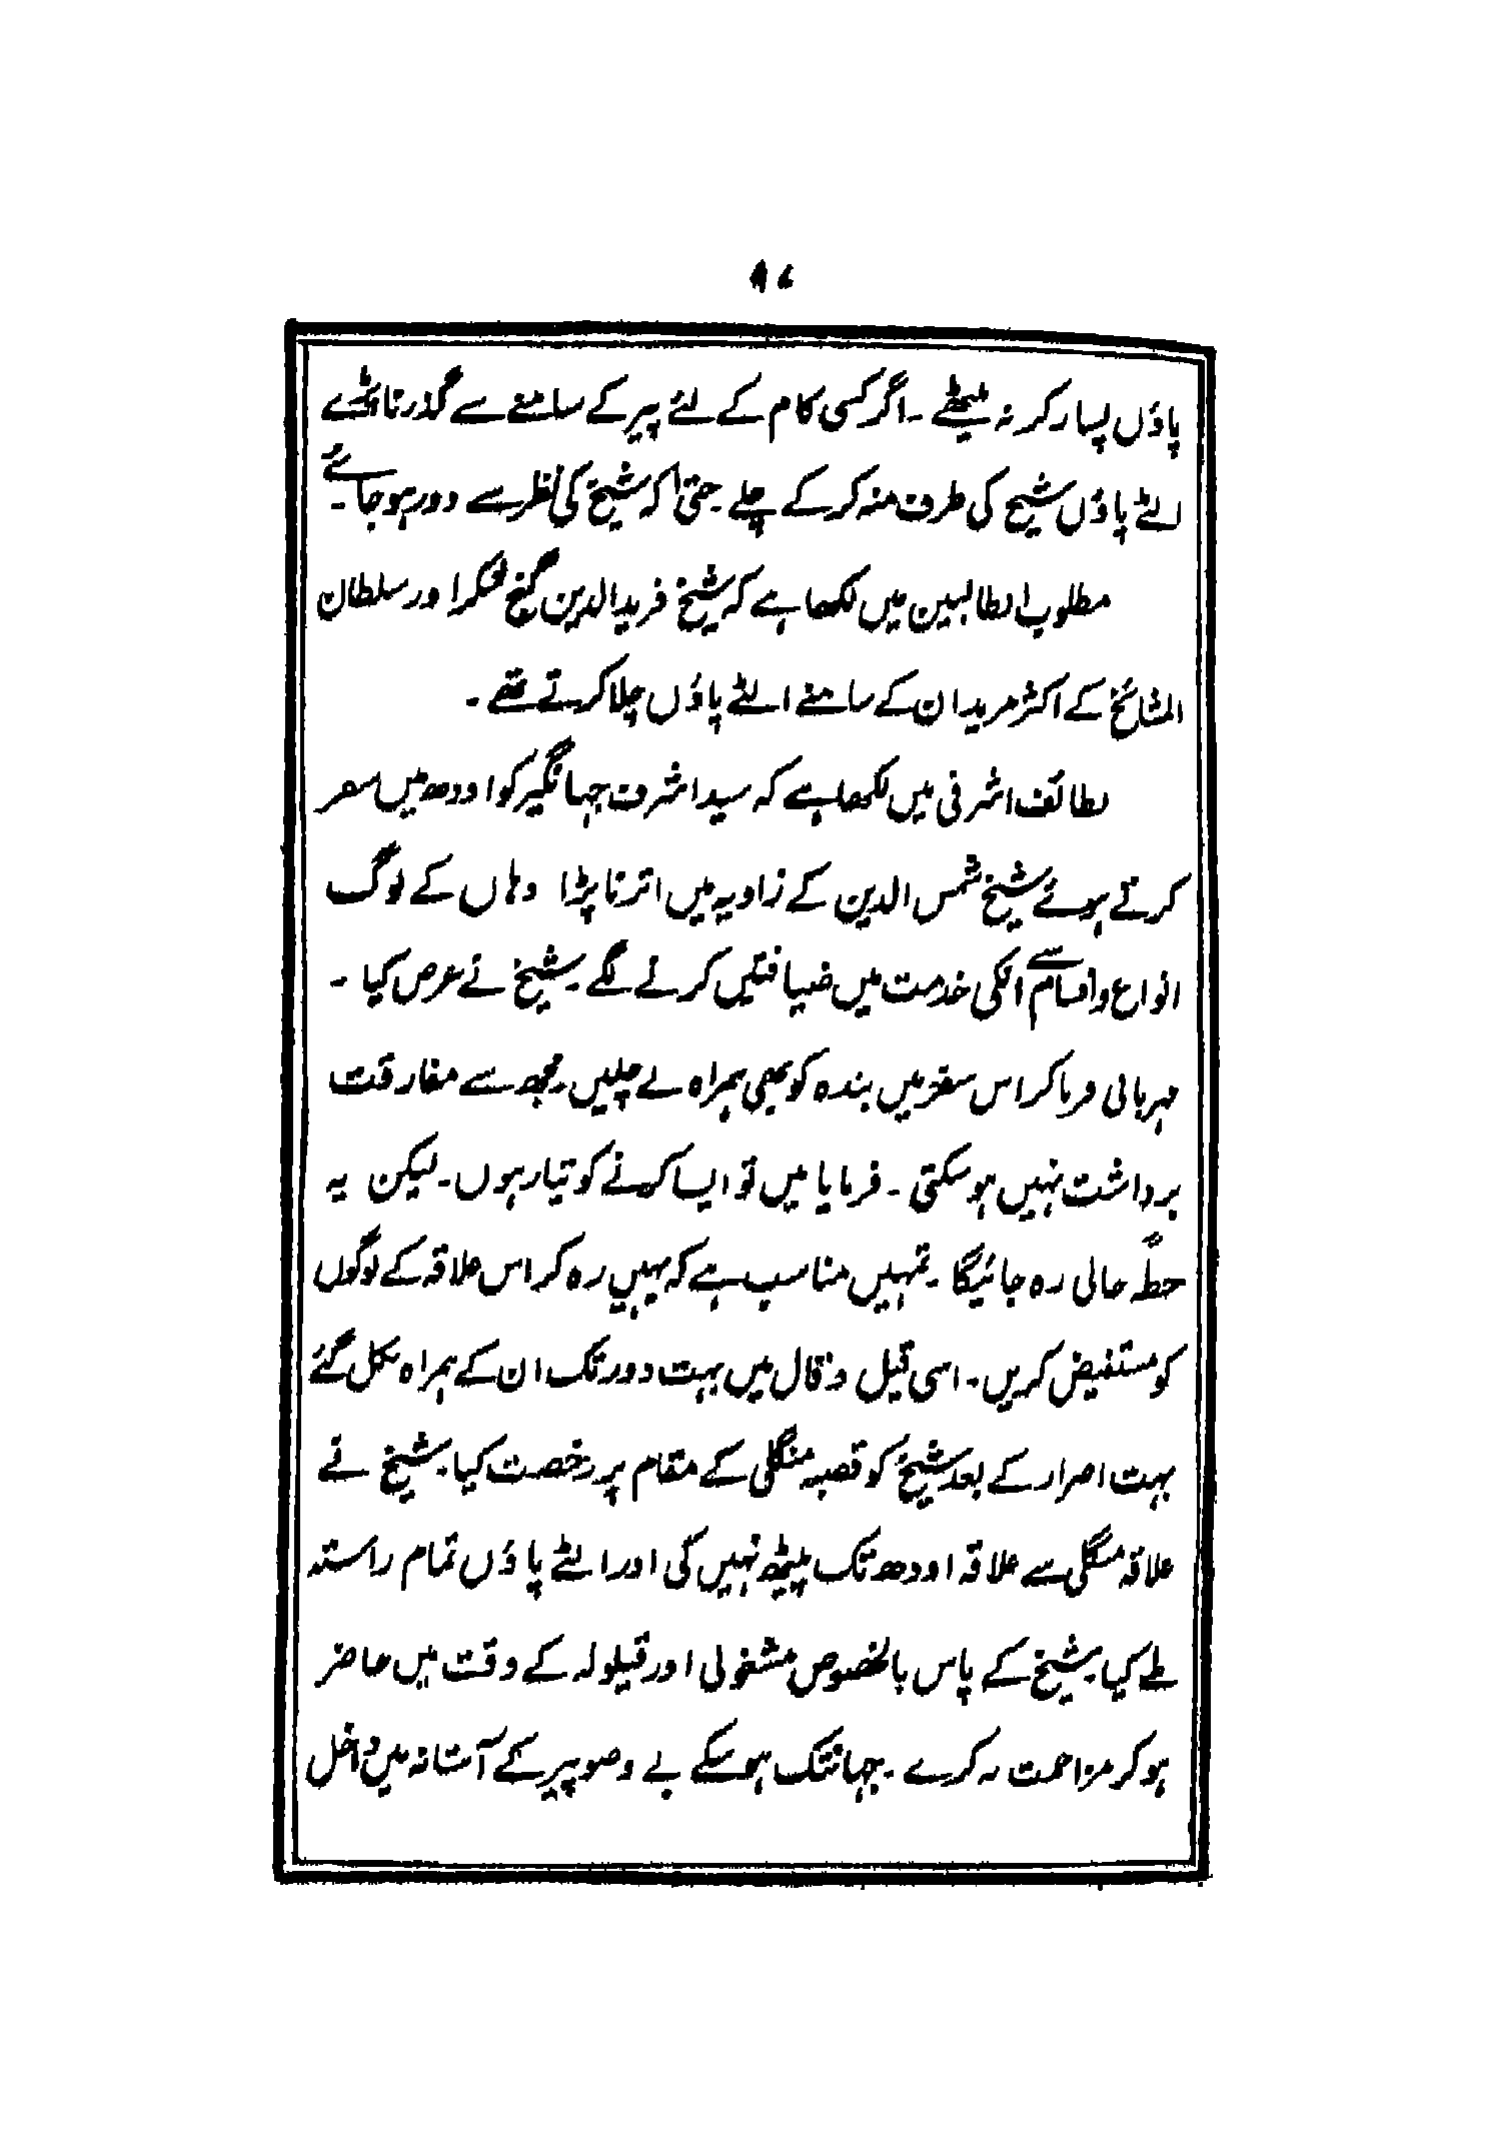 پاؤں پسار کر نہ بیٹھے ۔ اگر کسی کام کے لئے پیر کے سامنے سے گذرنا پڑے
الٹے پاؤں شیخ کی طرف منہ کر کے چلے ۔ حتیٰ کہ شیخ کی نظر سے دور ہو جائے ۔
مطلوب الطالبین میں لکھا ہے کہ شیخ فرید الدین گنج شکر اور سلطان
المشائخ کے اکثر مرید ان کے سامنے الٹے پاؤں چلا کرتے تھے ۔
لطائف اشرفی میں لکھا ہے کہ سید اشرف جہانگیر کو اودھ میں سفر
کرتے ہوئے شیخ شمس الدین کے زاویہ میں اترنا پڑا وہاں کے لوگ
انواع و اقسام سے انکی خدمت میں ضیافتیں کرنے لگے ۔ شیخ نے عرض کیا ۔
مہربانی فرما کر اس سفر میں بندہ کو بھی ہمراہ لے چلیں ۔ مجھ سے مفارقت
برداشت نہیں ہو سکتی ۔ فرمایا میں تو ایسا کرنے کو تیار ہوں ۔ لیکن یہ
خطہ خالی رہ جائیگا ۔ تمہیں مناسب ہے کہ یہیں رہ کر اس علاقہ کے لوگوں
کو مستفیض کریں ۔ اسی قیل و قال میں بہت دور تک ان کے ہمراہ نکل گئے
بہت اصرار کے بعد شیخ کو قصبہ منگلی کے مقام پر رخصت کیا ۔ شیخ نے
علاقہ منگلی سے علاقہ اودھ تک پیٹھ نہیں کی اور الٹے پاؤں تمام راستہ
طے کیا ۔ شیخ کے پاس بالخصوص مشغولی اور قیلولہ کے وقت میں حاضر
ہو کر مزاحمت نہ کرے ۔ جہانتک ہو سکے بے وضو پیر کے آستانہ میں داخل